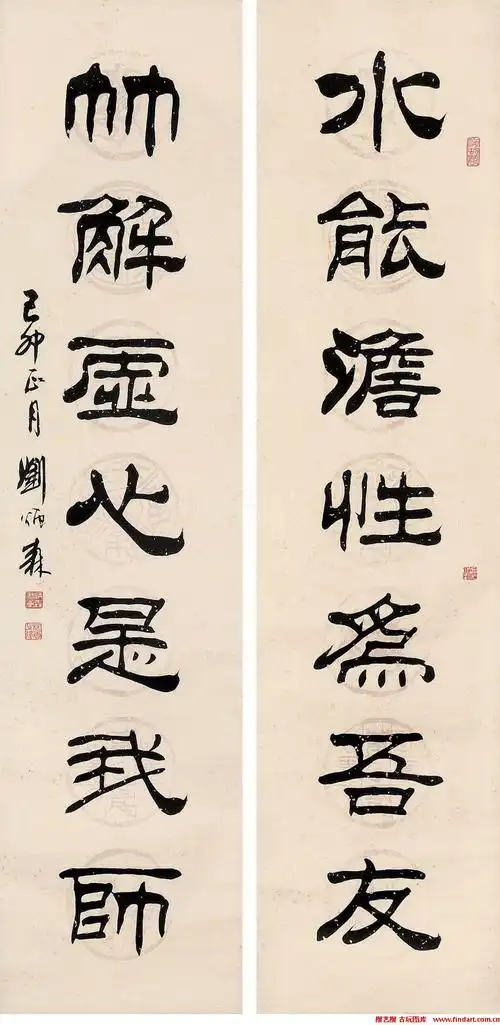 水能澹性為吾友
竹解虛心是我師
己卯正月 劉炳森
搜艺搜 古玩图库 www.findart.com.cn